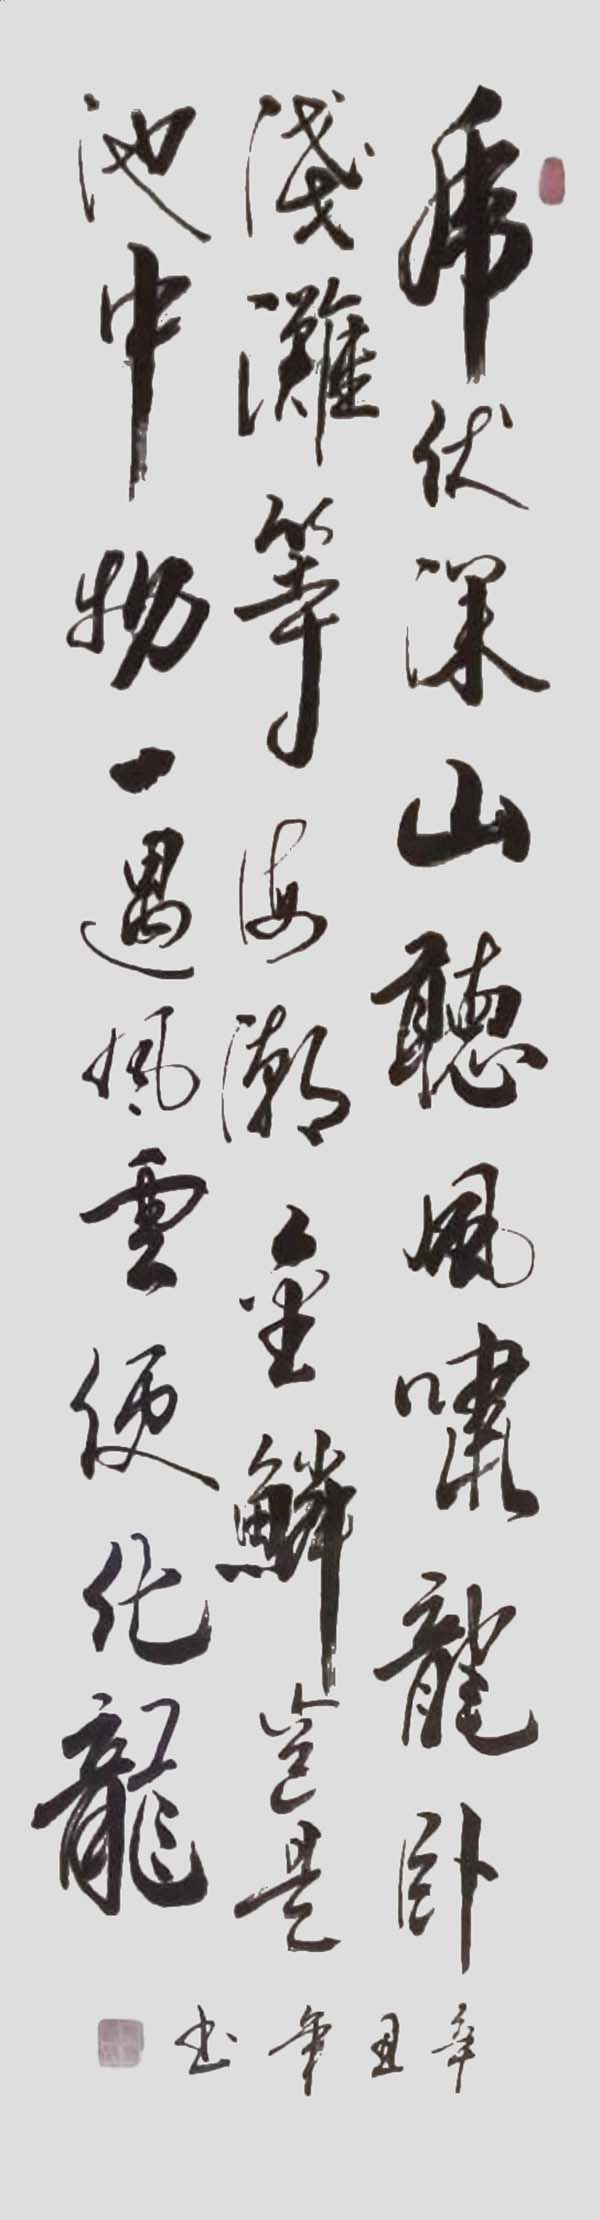 虎伏深山聽風嘯龍卧
淺灘等海潮金鱗豈是
池中物一遇風雲便化龍
辛丑年书